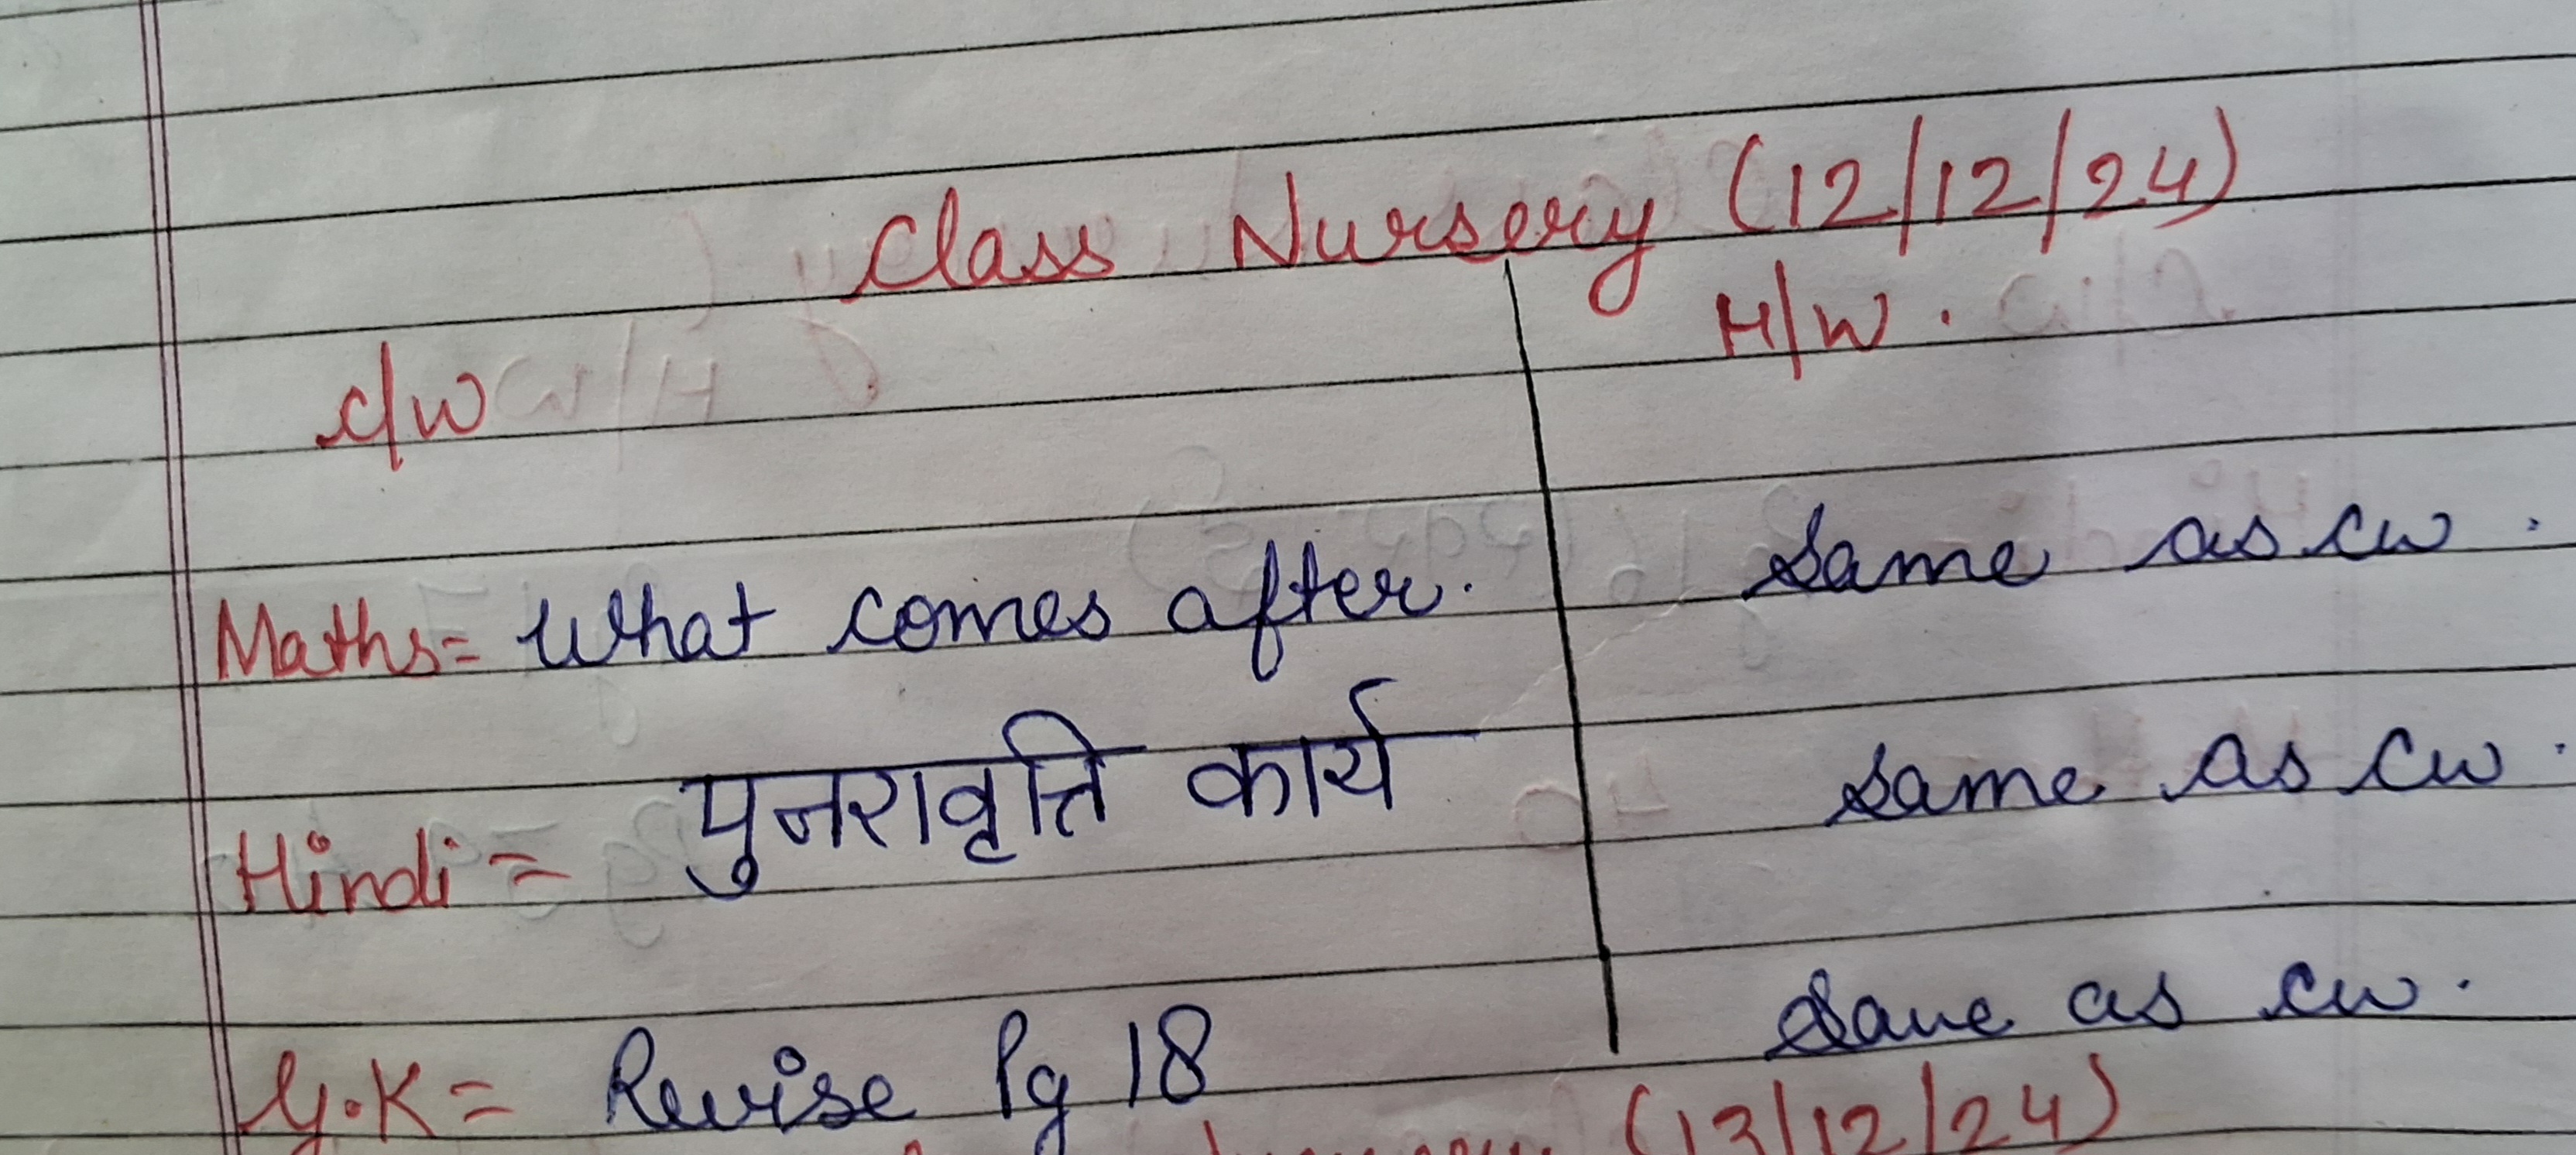 Class Nursery (12/12/24)
C/W H/W.
Maths= What comes after. Same as cw.
Hindi= पुनरावृत्ति कार्य same as cw.
G.K= Revise Pg 18 Same as cw.
(13/12/24)